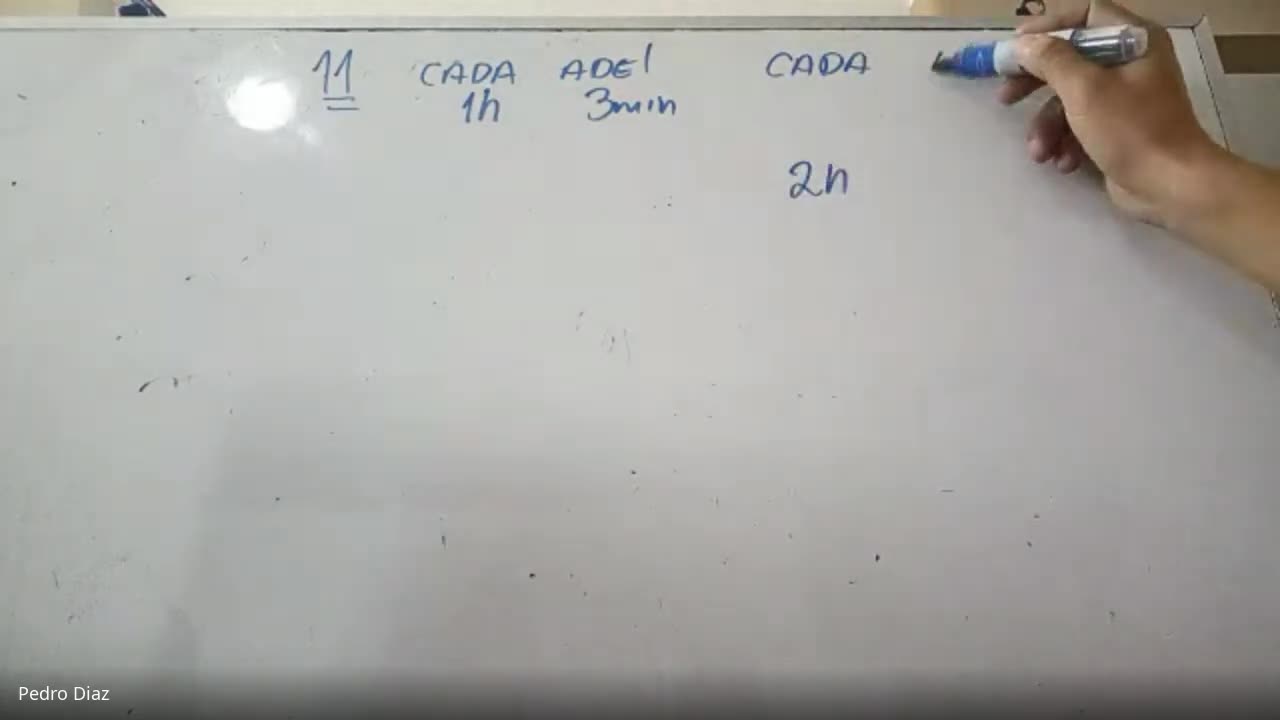 11 CADA ADEl CADA
1h 3min
2h
Pedro Diaz